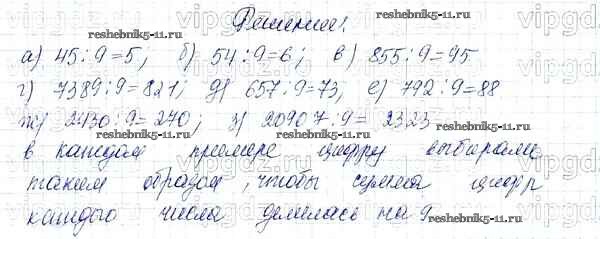 Решение!
а) 45:9=5; б) 54:9=6; в) 855:9=95
г) 7389:9=821; д) 657:9=73; е) 792:9=88
ж) 2430:9=270; з) 20907:9=2323
в каждом примере цифру выбираем
таким образом, чтобы сумма цифр
каждого числа делилась на 9
reshebnik5-11.ru
reshebnik5-11.ru
reshebnik5-11.ru
reshebnik5-11.ru
reshebnik5-11.ru